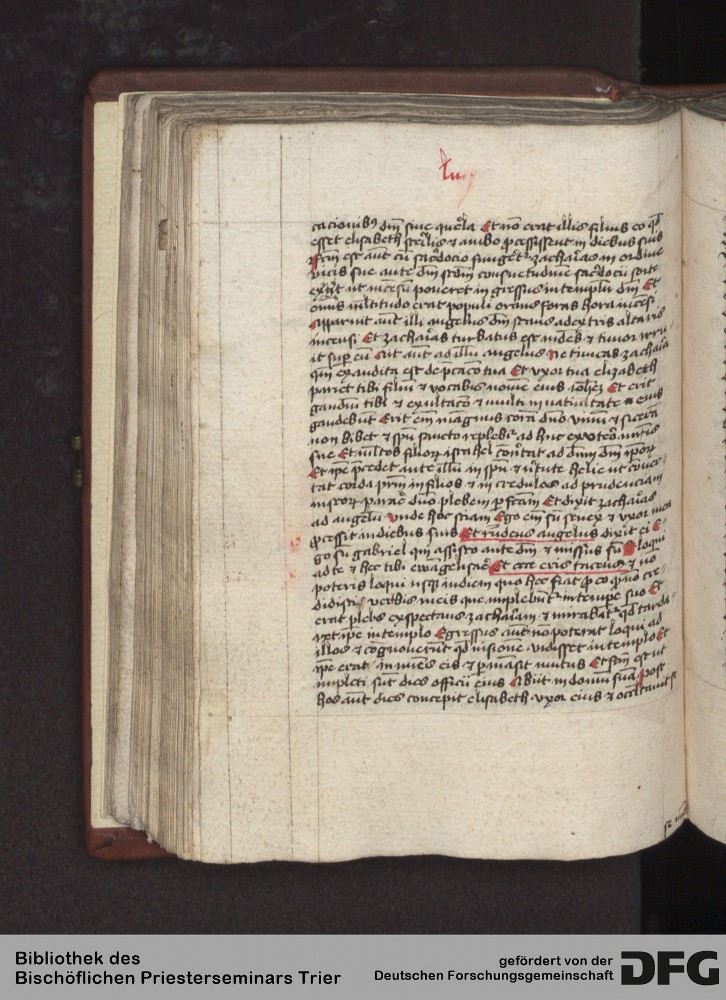 cacionibꝰ dn̄i sine querela Et nō erat illis filius eo qd̄
esset elisabeth sterilis ⁊ ambo ꝓcessissent in diebus suis
Fcm̄ est aut̄ cū sacerdocio fungeret᷑ zacharias in ordine
vicis sue ante dm̄ scdm̄ consuetudinē sacerdocii sorte
exijt ut incēsū poneret ingressus in templū dn̄i Et
omīs multitudo erat populi orans foras hora incēsi
Apparuit aut̄ illi angelus dn̄i stans a dextris altaris
incensi Et zacharias turbatus est videns ⁊ timor irru
it sup eū Ait aut̄ ad illū angelus Ne timeas zacharia
qm̄ exaudita est dep̄cacō tua Et vxor tua elizabeth
pariet tibi filiū ⁊ vocabis nomē eius Et erit
gaudiū tibi ⁊ exultacō ⁊ multi in natiuitate eius
gaudebunt Erit em̄ magnus corā dn̄o vinū ⁊ sicerā
non bibet ⁊ spū sancto replebit᷑ adhuc ex vtero mr̄is
sue Et multos filiorū israhel cōuertat ad dn̄m dm̄ ipsorū
Et ip̄e p̄cedet ante illū in spū ⁊ v̄tute helie ut conuer-
tat corda prm̄ in filios ⁊ incredulos ad prudenciam
iustorū parare dn̄o plebem ꝓfectam Et dixit zacharias
ad angelū vnde hoc sciam Ego em̄ sū senex ⁊ vxor mea
ꝓcessit in diebus suis Et rn̄dens angelus dixit ei E-
go sū gabriel qui assisto ante dm̄ ⁊ missus sū loqui
ad te ⁊ hec tibi ewangelisare Et ecce eris tacens ⁊ nō
poteris loqui usqꝫ in diem quo hec fiat ꝓ eo quod nō cre-
didisti verbis meis que implebunt᷑ in tempe suo Et
erat plebs expectans zachariam ⁊ mirabat᷑ qd̄ tarda-
ret ip̄e in templo Egressus aut̄ nō poterat loqui ad
illos ⁊ cognouerūt qd̄ visionē vidisset in templo Et
ip̄e erat innuens eis ⁊ p̄mansit mutus Et fcm̄ est ut
impleti sūt dies officii eius Abiit in domū suā Post
hos aut̄ dies concepit elisabeth vxor eius ⁊ occultauit se
Bibliothek des
Bischöflichen Priesterseminars Trier
gefördert von der
Deutschen Forschungsgemeinschaft
DFG